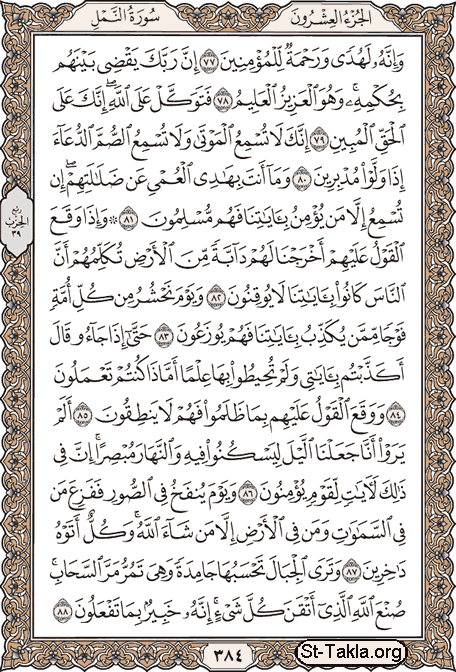 الجزء العشرون
سورة النمل
وَإِنَّهُۥ لَهُدًى وَرَحْمَةٌ لِّلْمُؤْمِنِينَ ٧٧ إِنَّ رَبَّكَ يَقْضِى بَيْنَهُم
بِحُكْمِهِۦۚ وَهُوَ ٱلْعَزِيزُ ٱلْعَلِيمُ ٧٨ فَتَوَكَّلْ عَلَى ٱللَّهِۖ إِنَّكَ عَلَى
ٱلْحَقِّ ٱلْمُبِينِ ٧٩ إِنَّكَ لَا تُسْمِعُ ٱلْمَوْتَىٰ وَلَا تُسْمِعُ ٱلصُّمَّ ٱلدُّعَآءَ
إِذَا وَلَّوْا۟ مُدْبِرِينَ ٨٠ وَمَآ أَنتَ بِهَٰدِى ٱلْعُمْىِ عَن ضَلَٰلَتِهِمْۖ إِن
تُسْمِعُ إِلَّا مَن يُؤْمِنُ بِـَٔايَٰتِنَا فَهُم مُّسْلِمُونَ ٨١ ۞ وَإِذَا وَقَعَ
ٱلْقَوْلُ عَلَيْهِمْ أَخْرَجْنَا لَهُمْ دَآبَّةً مِّنَ ٱلْأَرْضِ تُكَلِّمُهُمْ أَنَّ
ٱلنَّاسَ كَانُوا۟ بِـَٔايَٰتِنَا لَا يُوقِنُونَ ٨٢ وَيَوْمَ نَحْشُرُ مِن كُلِّ أُمَّةٍ
فَوْجًا مِّمَّن يُكَذِّبُ بِـَٔايَٰتِنَا فَهُمْ يُوزَعُونَ ٨٣ حَتَّىٰٓ إِذَا جَآءُو قَالَ
أَكَذَّبْتُم بِـَٔايَٰتِى وَلَمْ تُحِيطُوا۟ بِهَا عِلْمًا أَمَّاذَا كُنتُمْ تَعْمَلُونَ
٨٤ وَوَقَعَ ٱلْقَوْلُ عَلَيْهِم بِمَا ظَلَمُوا۟ فَهُمْ لَا يَنطِقُونَ ٨٥ أَلَمْ
يَرَوْا۟ أَنَّا جَعَلْنَا ٱلَّيْلَ لِيَسْكُنُوا۟ فِيهِ وَٱلنَّهَارَ مُبْصِرًاۚ إِنَّ فِى
ذَٰلِكَ لَـَٔايَٰتٍ لِّقَوْمٍ يُؤْمِنُونَ ٨٦ وَيَوْمَ يُنفَخُ فِى ٱلصُّورِ فَفَزِعَ مَن
فِى ٱلسَّمَٰوَٰتِ وَمَن فِى ٱلْأَرْضِ إِلَّا مَن شَآءَ ٱللَّهُۚ وَكُلٌّ أَتَوْهُ
دَٰخِرِينَ ٨٧ وَتَرَى ٱلْجِبَالَ تَحْسَبُهَا جَامِدَةً وَهِىَ تَمُرُّ مَرَّ ٱلسَّحَابِۚ
صُنْعَ ٱللَّهِ ٱلَّذِىٓ أَتْقَنَ كُلَّ شَىْءٍۚ إِنَّهُۥ خَبِيرٌۢ بِمَا تَفْعَلُونَ ٨٨
ربع
الحزب
٣٩
٣٨٤
St-Takla.org